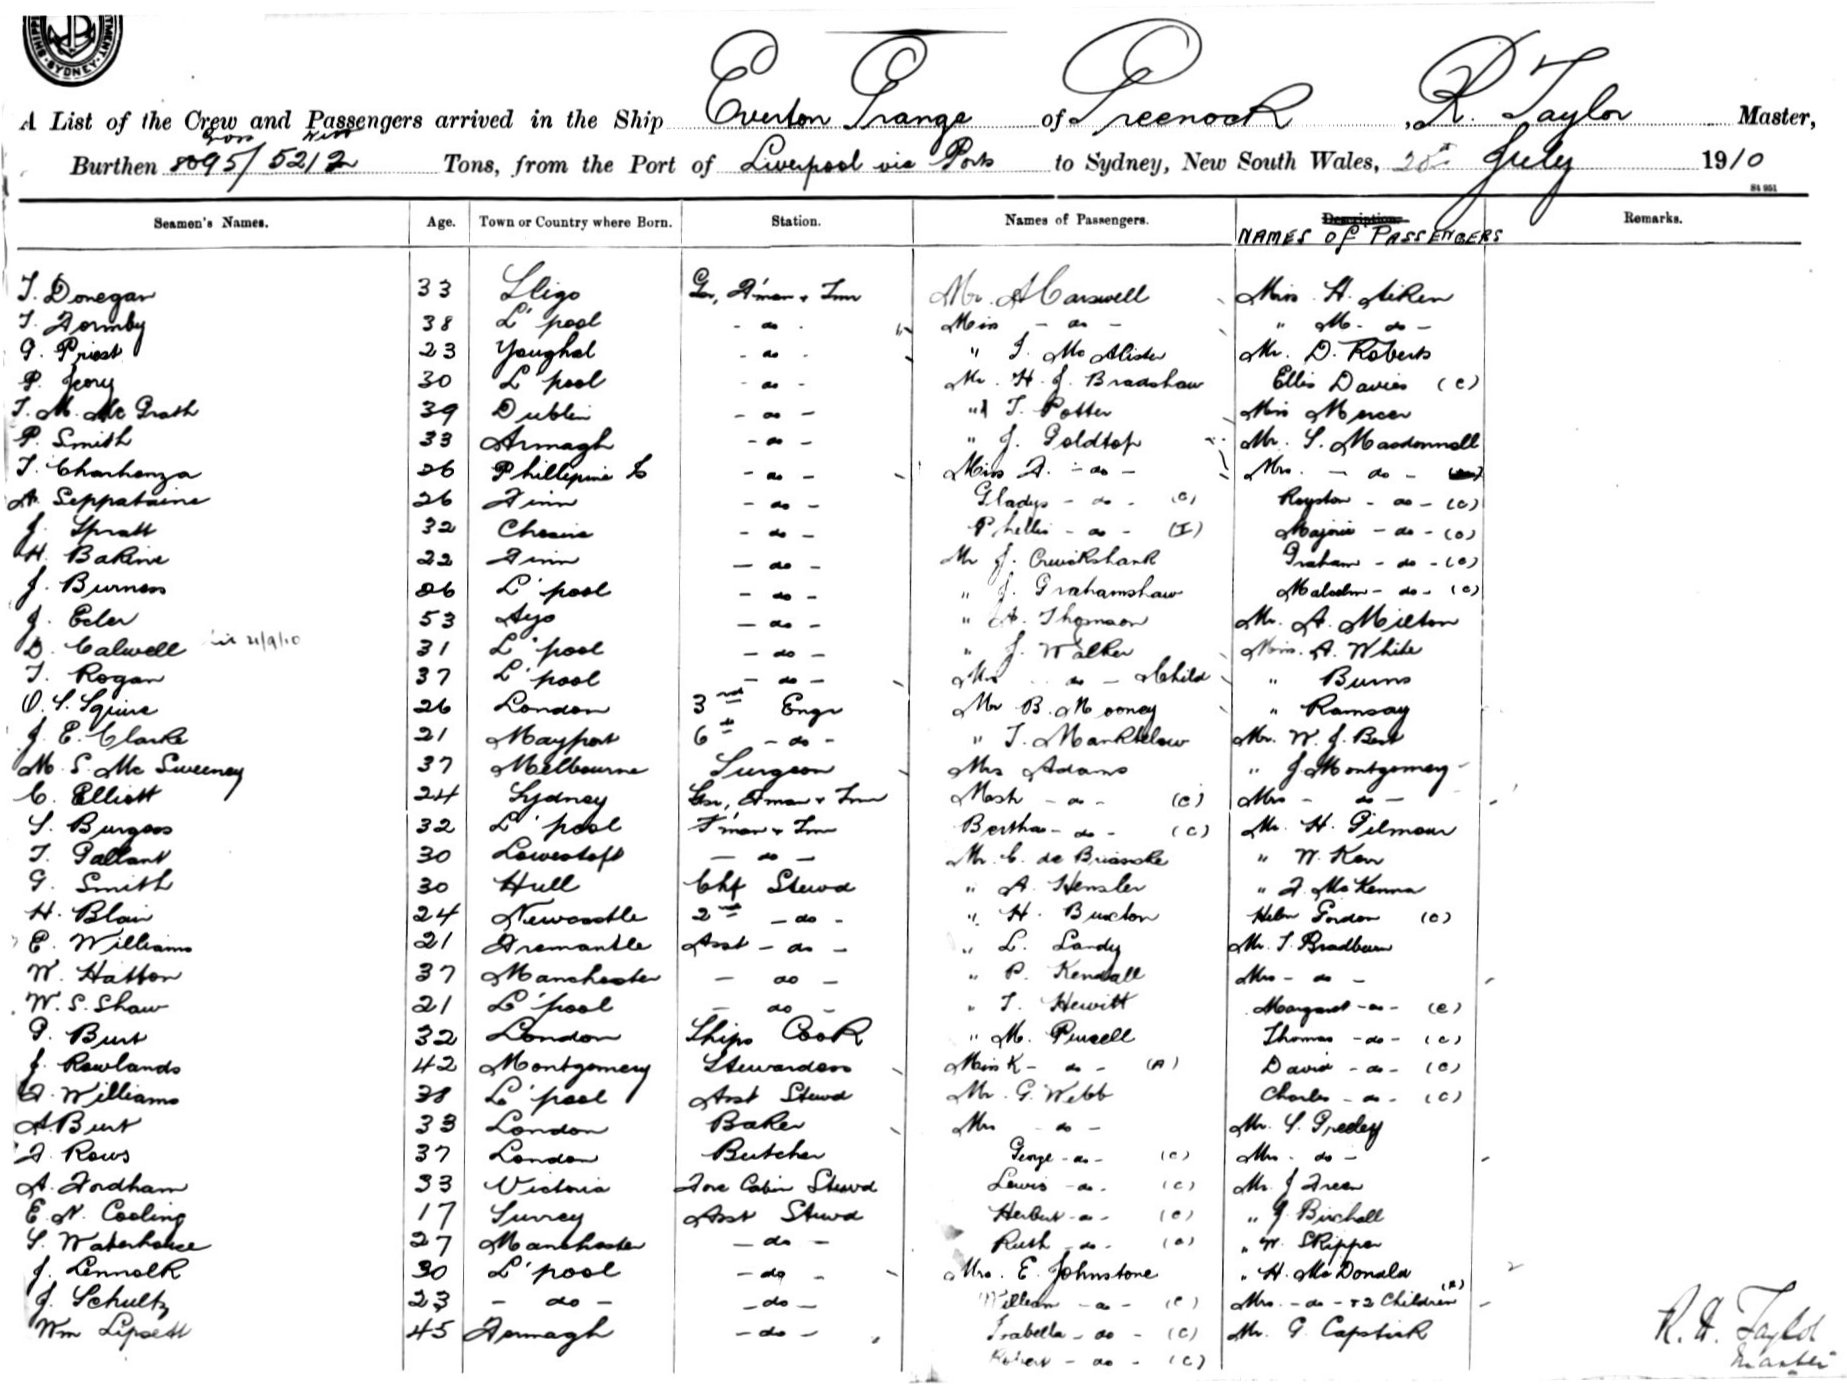 SHIPPING · SYDNEY ·
A List of the Crew and Passengers arrived in the Ship Everton Grange of Greenock, R. Taylor Master,
Gross Nett
Burthen 8095/5212 Tons, from the Port of Liverpool via Ports to Sydney, New South Wales, 28th July 1910
St 951
Seamen's Names. Age. Town or Country where Born. Station. Names of Passengers. Description. Remarks.
NAMES OF PASSENGERS
T. Donegan 33 Sligo Gsr, F'man & Tmr Mr. A Carswell Miss. H. Aiken
T. Formby 38 L'pool - do - Miss - do - " M. - do -
G. Priest 23 Youghal - do - " J. McAlister Mr. D. Roberts
P. 30 L'pool - do - Mr. H. J. Bradshaw Ellis Davies (C)
T. M. Mc Grath 39 Dublin - do - " T. Potter Miss Mercer
P. Smith 33 Armagh - do - " J. Goldtop Mr. S. Macdonnell
T. Charhenza 26 Phillipine Is - do - Miss F. - do - Mrs. - do -
A. Seppataine 26 Finn - do - Gladys - do - (C) Royston - do - (C)
J. Spratt 32 - do - Phellis - do - (I) Majorie - do - (C)
H. Bakine 22 Finn - do - Mr J. Cruickshank Graham - do - (C)
J. Burness 26 L'pool - do - " J. Grahamshaw Malcolm - do - (C)
J. Ecler 53 - do - " A. Thomson Mr. A. Milton
D. Calwell 21/9/10 31 L'pool - do - " J. Walker Miss. A. White
T. Rogan 37 L'pool - do - Mrs - do - & Child " Burns
O. S. Squire 26 London 3rd Engr Mr B. Mooney " Ramsay
J. E. Clarke 21 Mayport 6th - do - " T. Marktelow Mr. W. J. Best
M. S. Mc Sweeney 37 Melbourne Surgeon Mrs Adams " J. Montgomery
C. Elliott 24 Sydney Gsr, F'man & Tmr Mast - do - (C) Mrs - do -
S. Burgess 32 L'pool F'man & Tmr Bertha - do - (C) Mr. H. Gilmour
T. Gallant 30 Lowestoft - do - Mr. C. de " W. Kerr
G. Smith 30 Hull Chf Stewd " A. Hensler " F. McKenna
H. Blair 24 Newcastle 2nd - do - " H. Buxton Helen Gordon (C)
E. Williams 21 Fremantle Asst - do - " L. Landy Mr. T. Bradburn
W. Hatton 37 Manchester - do - " P. Kendall Mrs - do -
W. S. Shaw 21 L'pool - do - " T. Hewitt Margaret - do - (C)
G. Burt 32 London Ships Cook " M. Purcell Thomas - do - (C)
J. Rowlands 42 Montgomery Stewardess Miss K - do - (A) David - do - (C)
F. Williams 38 L'pool Asst Stewd Mr. G. Webb Charles - do - (C)
A Burt 33 London Baker Mrs - do - Mr. S. Greeley
F. Rows 37 London Butcher George - do - (C) Mrs. - do -
A. Fordham 33 Victoria Fore Cabin Stewd Lewis - do - (C) Mr. J Freer
E. N. Cooling 17 Surrey Asst Stewd Herbert - do - (C) " J. Birchall
S. Waterhouse 27 Manchester - do - Ruth - do - (C) " W. Skipper
J. Lennock 30 L'pool - do - Mrs. E. Johnstone " H. McDonald
J. Schultz 23 - do - - do - William - do - (C) Mrs. - do - & 2 Children (A)
Wm Lipsett 45 Fermagh - do - Isabella - do - (C) Mr. G. Capstick
Robert - do - (C)
R. H. Taylor
Master